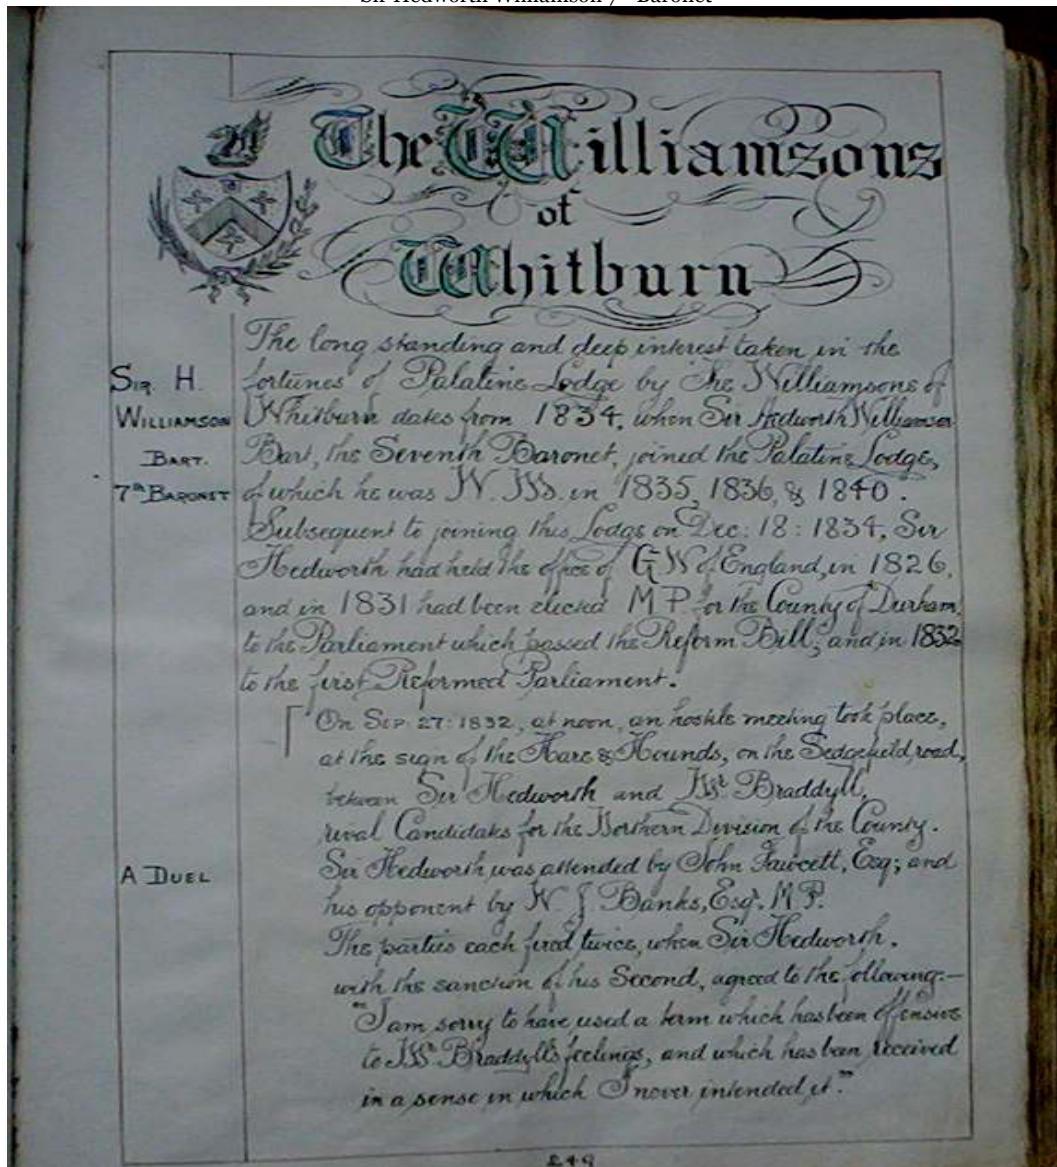 Sir Hedworth Williamson 7th Baronet
The Williamsons
of
Whitburn
The long standing and deep interest taken in the
Sir H. fortunes of Palatine Lodge by The Williamsons of
Williamson Whitburn dates from 1834, when Sir Hedworth Williamson
Bart. Bart, the Seventh Baronet, joined the Palatine Lodge,
7th Baronet of which he was W. M. in 1835, 1836, & 1840.
Subsequent to joining this Lodge on Dec: 18: 1834, Sir
Hedworth had held the office of G W of England, in 1826,
and in 1831 had been elected M P for the County of Durham,
to the Parliament which passed the Reform Bill; and in 1832
to the first Reformed Parliament.
On Sep: 27: 1832, at noon, an hostile meeting took place,
at the sign of the Hare & Hounds, on the Sedgefield road,
between Sir Hedworth and Mr. Braddyll,
rival Candidates for the Northern Division of the County.
A Duel Sir Hedworth was attended by John Fawcett, Esq; and
his opponent by W. J. Banks, Esqr. M P.
The parties each fired twice, when Sir Hedworth,
with the sanction of his Second, agreed to the following:—
"I am sorry to have used a term which has been offensive
to Mr. Braddyll's feelings, and which has been received
in a sense in which I never intended it."
249